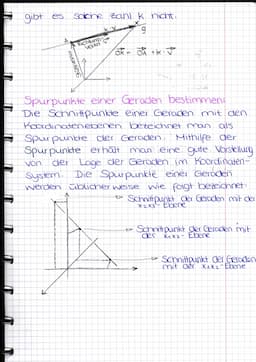 gibt es solche Zahl k nicht.
g
A
k·v
Richtungs-
vektor
x
OX = OA + k · v
Spurpunkte einer Geraden bestimmen:
Die Schnittpunkte einer Geraden mit den
Koordinatenebenen bezeichnet man als
Spurpunkte der Geraden. Mithilfe der
Spurpunkte erhält man eine gute Vorstellung
von der Lage der Geraden im Koordinaten-
system. Die Spurpunkte einer Geraden
werden üblicherweise wie folgt bezeichnet:
Schnittpunkt der Geraden mit der
x2x3-Ebene
Schnittpunkt der Geraden mit
der x1x3-Ebene
Schnittpunkt der Geraden
mit der x1x2-Ebene